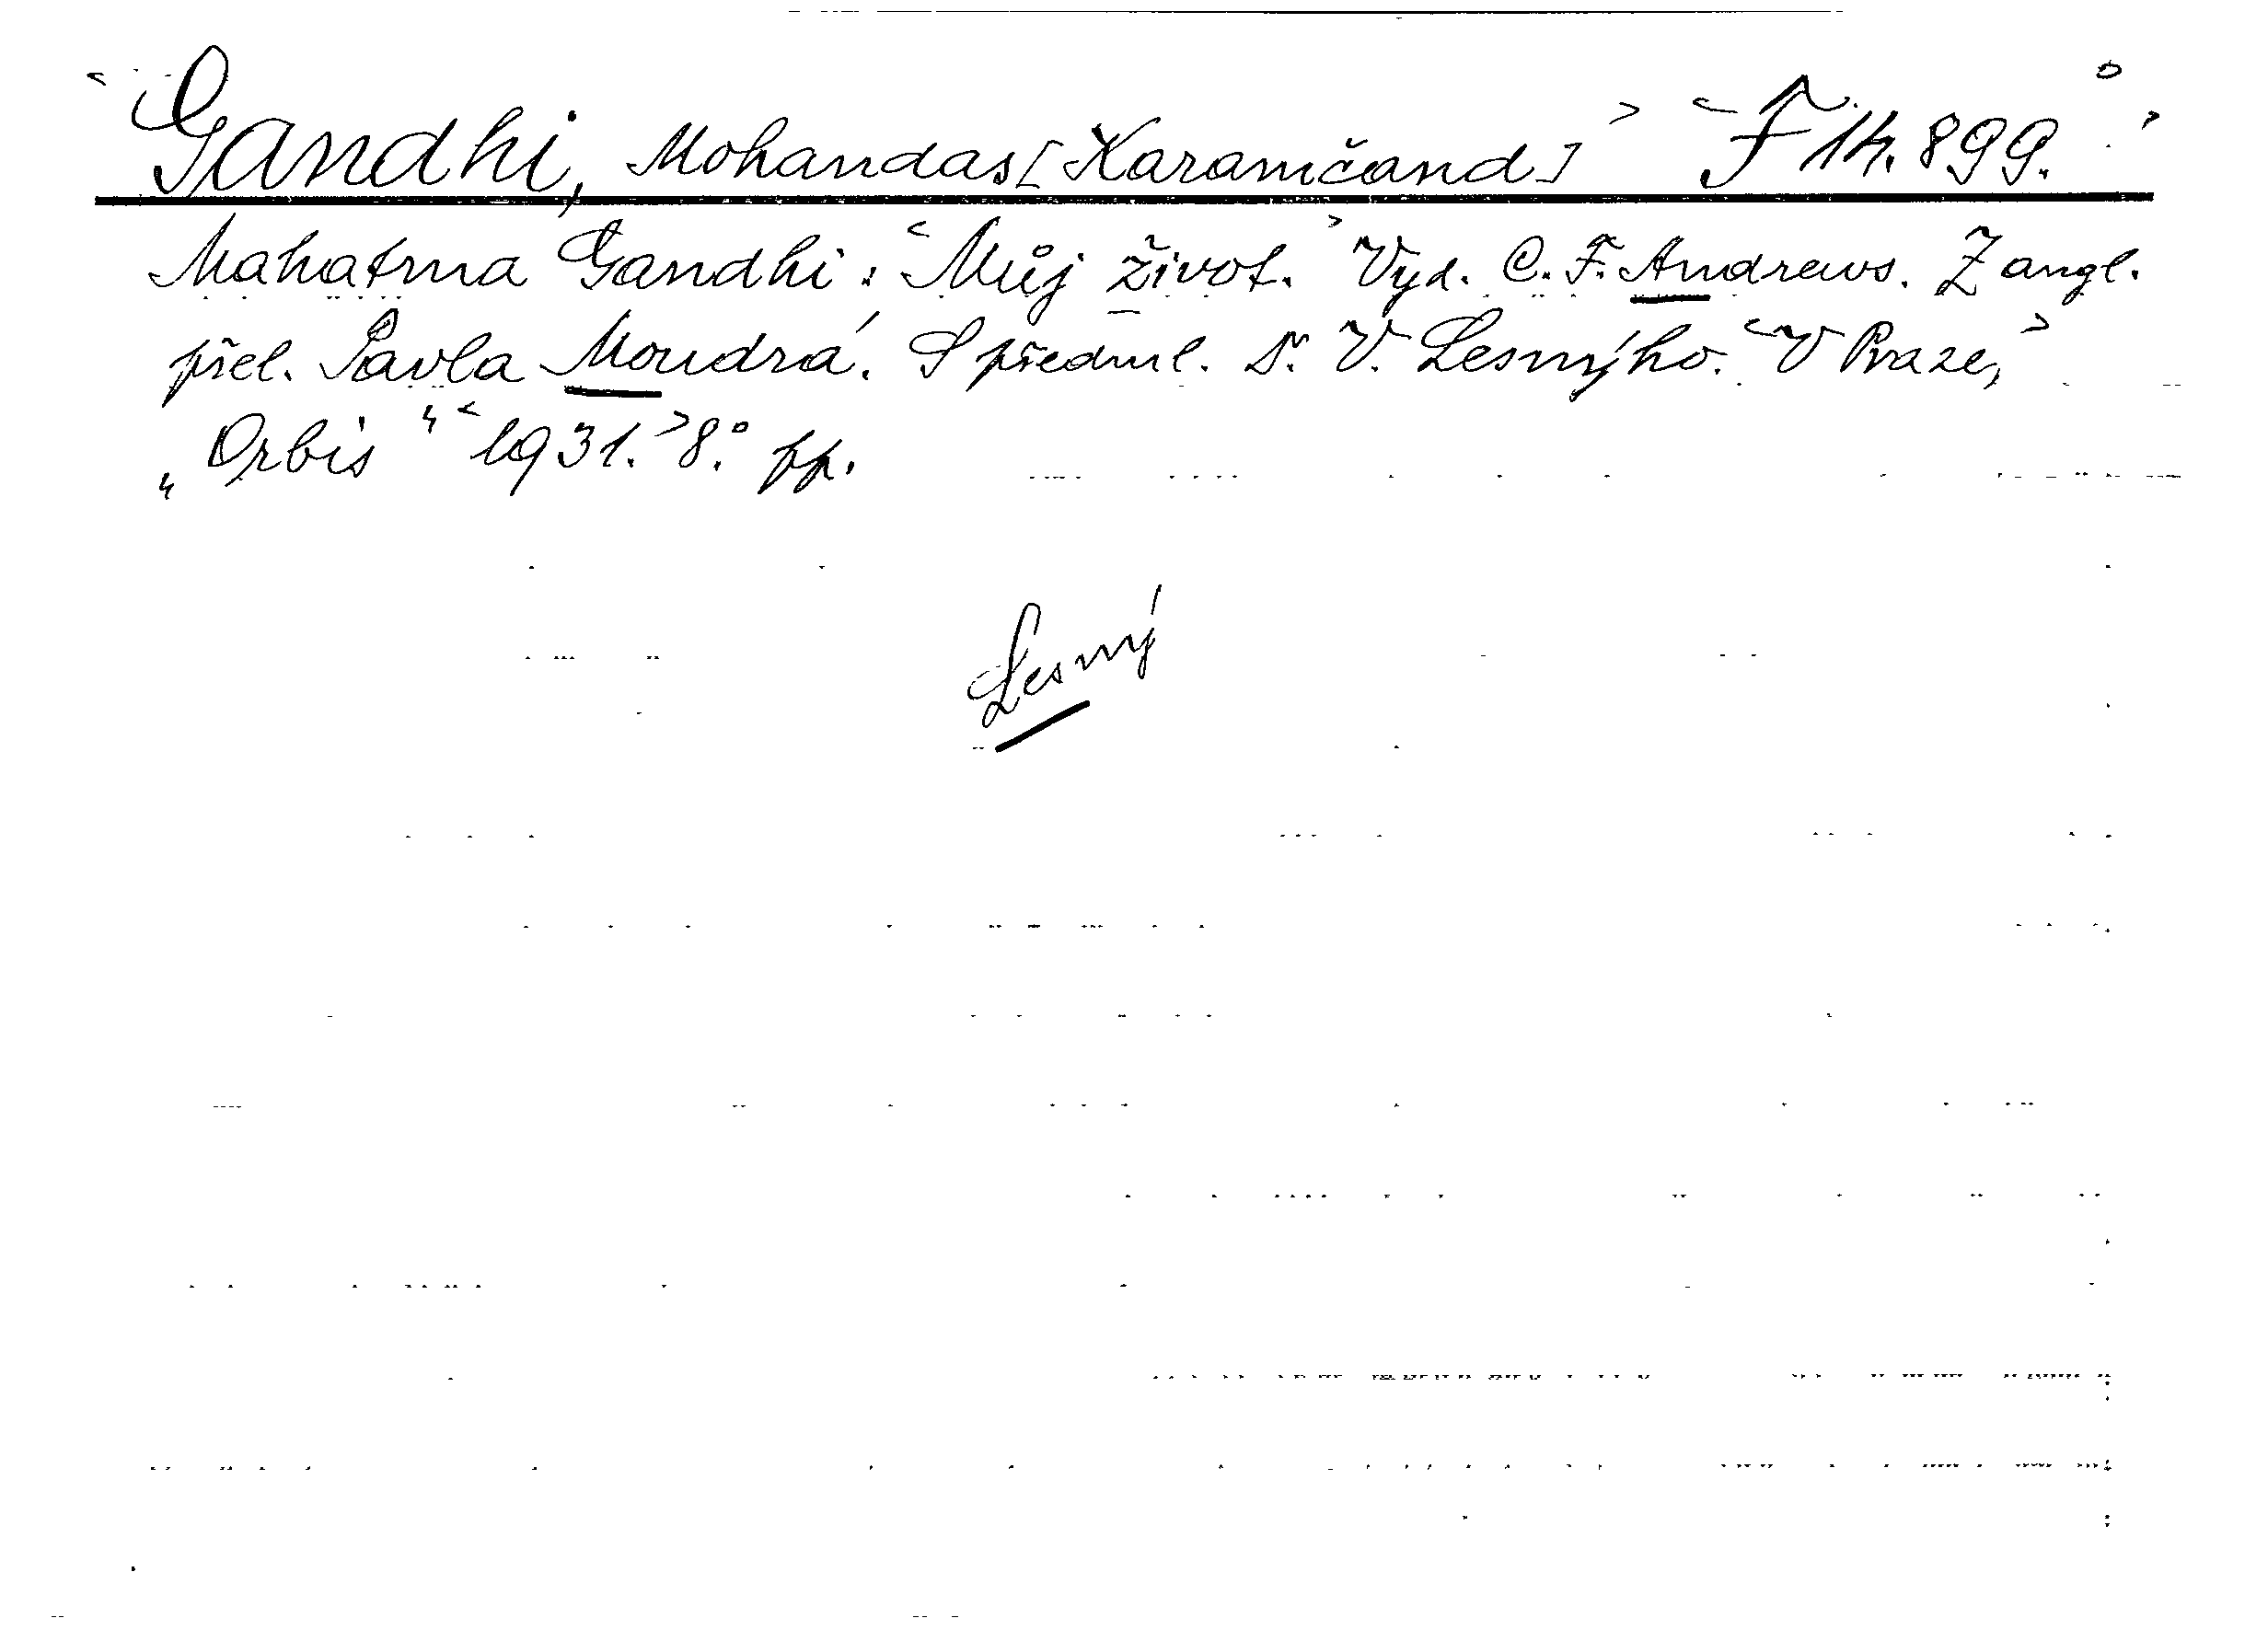 Gandhi, Mohandas [Karamčand] F 14.899.
Mahatma Gandhi: Můj život. Vyd. C. F. Andrews. Z angl.
přel. Pavla Moudrá. S předml. Dr. V. Lesnýho. V Praze,
„Orbis“ 1931. 8°. pp.
Lesný